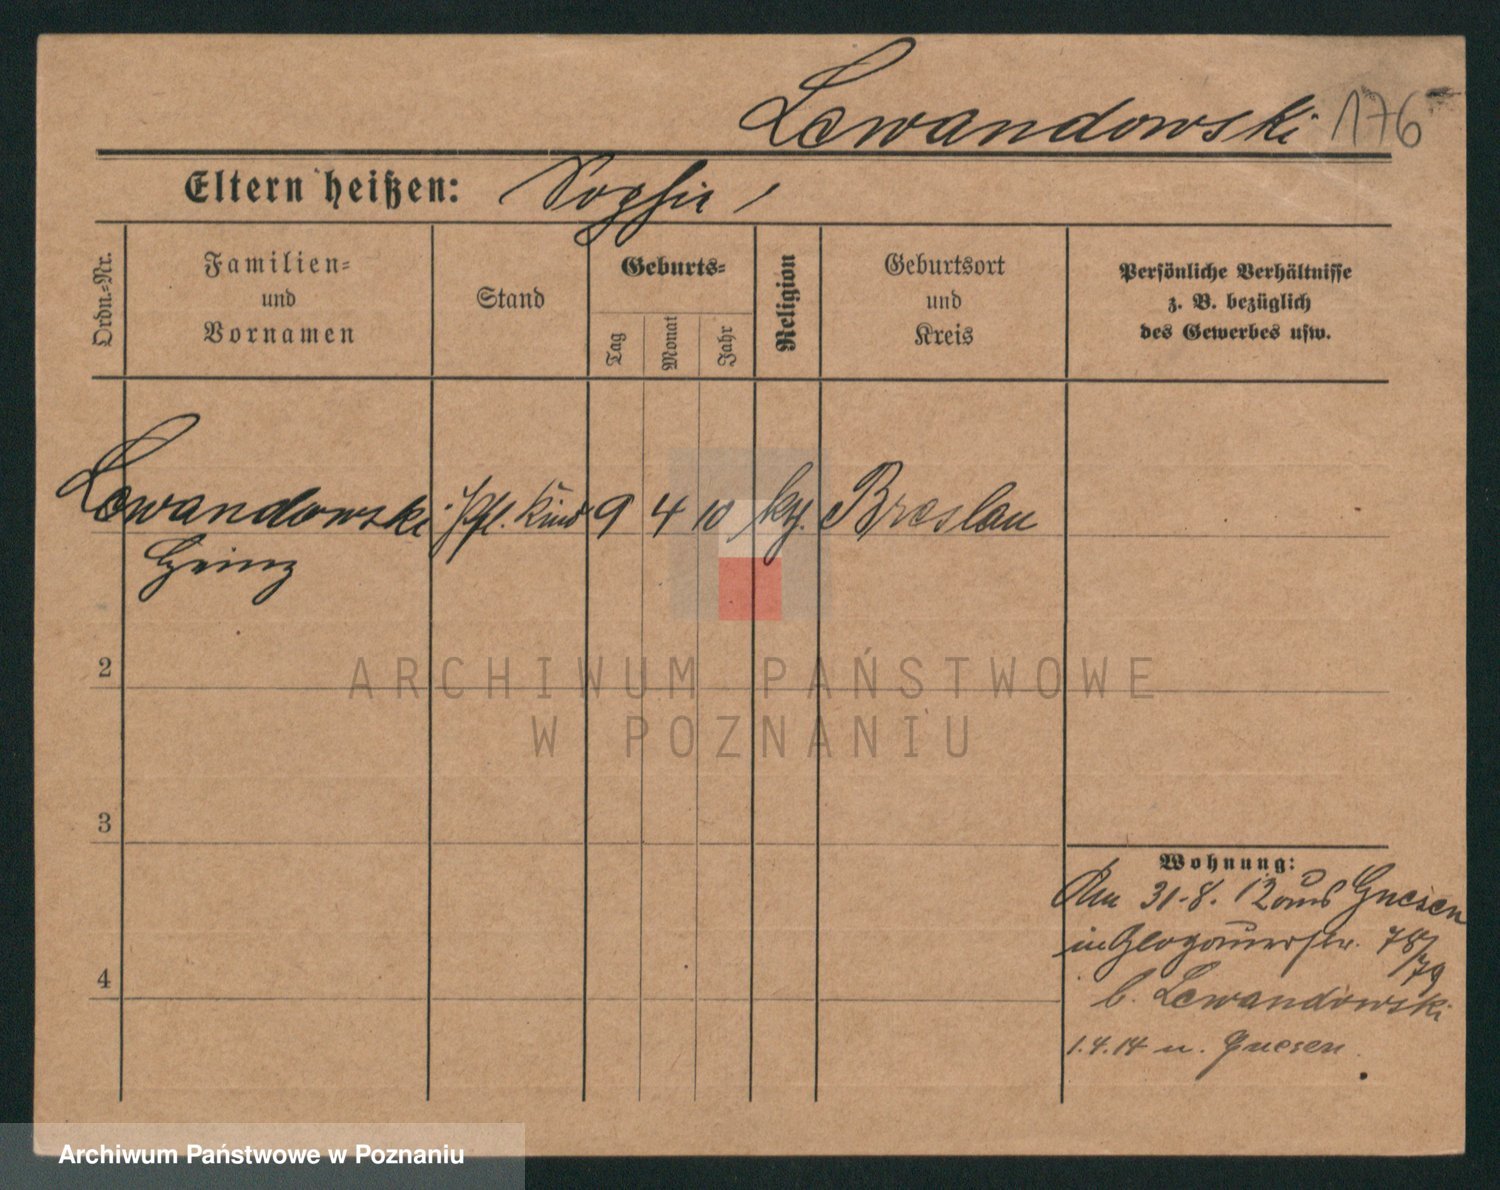 Lewandowski 176
Eltern heißen: Sophie,
Ordn.-Nr.
Familien-
und
Vornamen
Stand
Geburts-
Tag
Monat
Jahr
Religion
Geburtsort
und
Kreis
Persönliche Verhältnisse
z. B. bezüglich
des Gewerbes usw.
Lewandowski Pfl. Kind 9 4 10 Breslau
Heinz
2
3
4
Wohnung:
Am 31.8.12 aus Gnesen
in Glogauerstr. 78/79
b. Lewandowski
1.4.14 n. Gnesen
ARCHIWUM PAŃSTWOWE
W POZNANIU
Archiwum Państwowe w Poznaniu